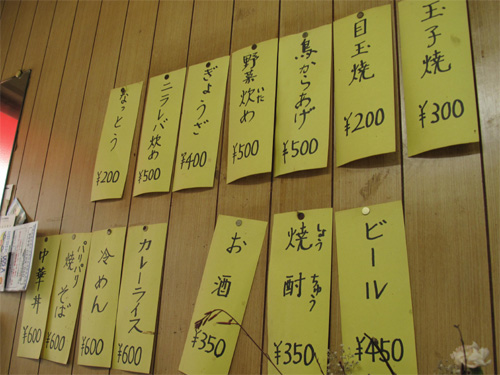 玉子焼 ¥300
目玉焼 ¥200
鳥からあげ ¥500
野菜炒め ¥500
いた
ぎょうざ ¥400
ニラレバ炒め ¥500
なっとう ¥200
ビール ¥450
焼酎 ¥350
しょうちゅう
お酒 ¥350
カレーライス ¥600
冷めん ¥600
パリパリ焼そば ¥600
中華丼 ¥600